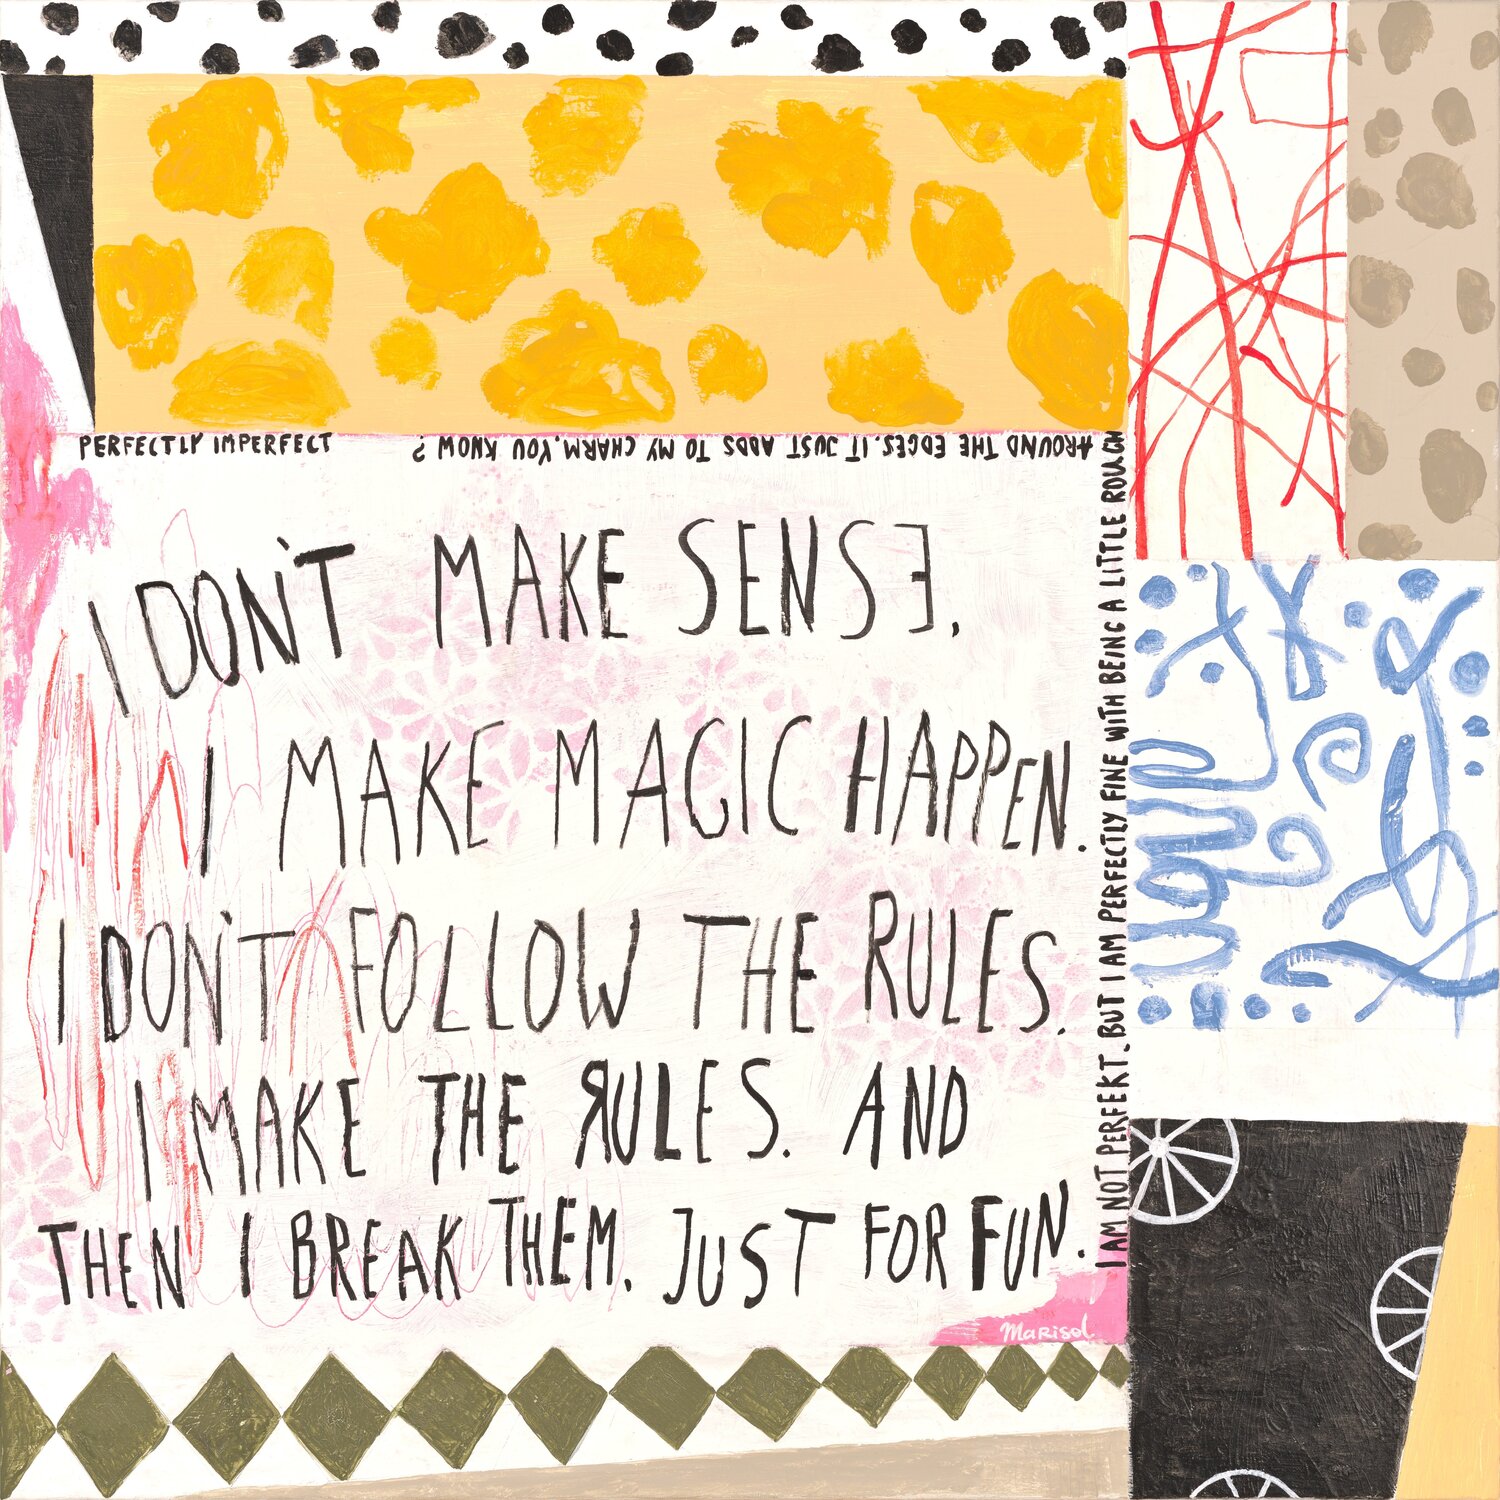 PERFECTLY IMPERFECT
I DON'T MAKE SENSE.
I MAKE MAGIC HAPPEN.
I DON'T FOLLOW THE RULES.
I MAKE THE RULES. AND
THEN I BREAK THEM. JUST FOR FUN.
I AM NOT PERFEKT. BUT I AM PERFECTLY FINE WITH BEING A LITTLE ROUGH
AROUND THE EDGES. IT JUST ADDS TO MY CHARM, YOU KNOW?
Marisol